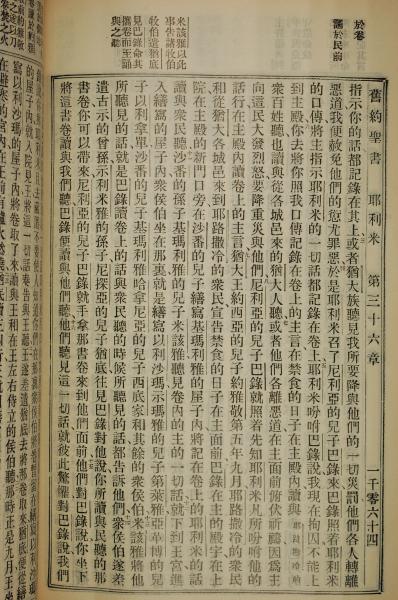 舊約聖書 耶利米 第三十六章 一千零六十四
於卷
讀於民前
指示你的話都記錄在其上或者猶大族聽見我所要降與他們的一切災罰他們各人轉離
惡道我便赦免他們的愆尤罪惡於是耶利米召了尼利亞的兒子巴錄來巴錄照着耶利米
的口傳將主指示耶利米的一切話都記錄在卷上耶利米吩咐巴錄說我現在拘囚不能上
到主殿你去將你照我口傳記錄在卷上的主言在禁食的日子在主殿內讀與
衆百姓聽也讀與從各城邑來的猶大人聽或者他們各離惡道在主面前俯伏祈禱因爲主
向這民大發烈怒要降重災與他們尼利亞的兒子巴錄就照着先知耶利米凡所吩咐他的
話行在主殿內讀卷上的主言猶大王約西亞的兒子約雅敬第五年九月耶路撒冷的衆民
和從猶大各城邑來到耶路撒冷的衆民宣告禁食的日子在主面前巴錄在主的殿宇在上
院在主殿的新門口旁在沙番的兒子繕寫基瑪利雅的屋子內將記在卷上的耶利米的話
米該雅以此
事告諸侯伯
侯伯遣猶底
見巴錄命其
攜卷而至誦
與之聽
讀與衆民聽沙番的孫子基瑪利雅的兒子米該雅聽見卷內的主的一切話就下到王宮進
入繕寫的屋子內衆侯伯坐在那裏就是繕寫以利沙瑪示瑪雅的兒子第萊雅革博的兒
子以利拿單沙番的兒子基瑪利雅哈拿尼亞的兒子西底家和其餘的衆侯伯米該雅將他
所聽見的話就是巴錄讀卷上的話與衆民聽的時候所聽見的話都告訴他們衆侯伯遂差
遣古示的曾孫示利米雅的孫子尼探亞的兒子猶底往見巴錄對他說你所讀與民聽的那
書卷你可以帶來尼利亞的兒子巴錄就手拿那書卷來到他們面前他們對巴錄說你坐下
將這書卷讀與我們聽巴錄便讀與他們聽他們聽見這一切話就彼此驚懼對巴錄說我們